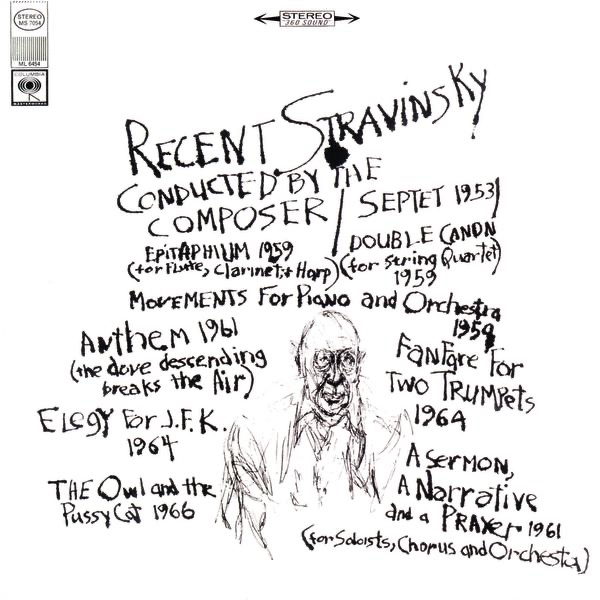 STEREO
MS 7054
ML 6454
COLUMBIA
MASTERWORKS
STEREO
360 SOUND
RECENT STRAVINSKY
CONDUCTED BY THE
COMPOSER
SEPTET 1953
EPITAPHIUM 1959
(for Flute, Clarinet + Harp)
DOUBLE CANON
(for String Quartet)
1959
MOVEMENTS For Piano and Orchestra
1959
Anthem 1961
(the dove descending
breaks the Air)
FanFare For
Two TRUMPets
1964
Elegy For J.F.K.
1964
THE Owl and the
PussyCat 1966
A Sermon,
A Narrative
and a PRAYer 1961
(for Soloists, Chorus and Orchestra)